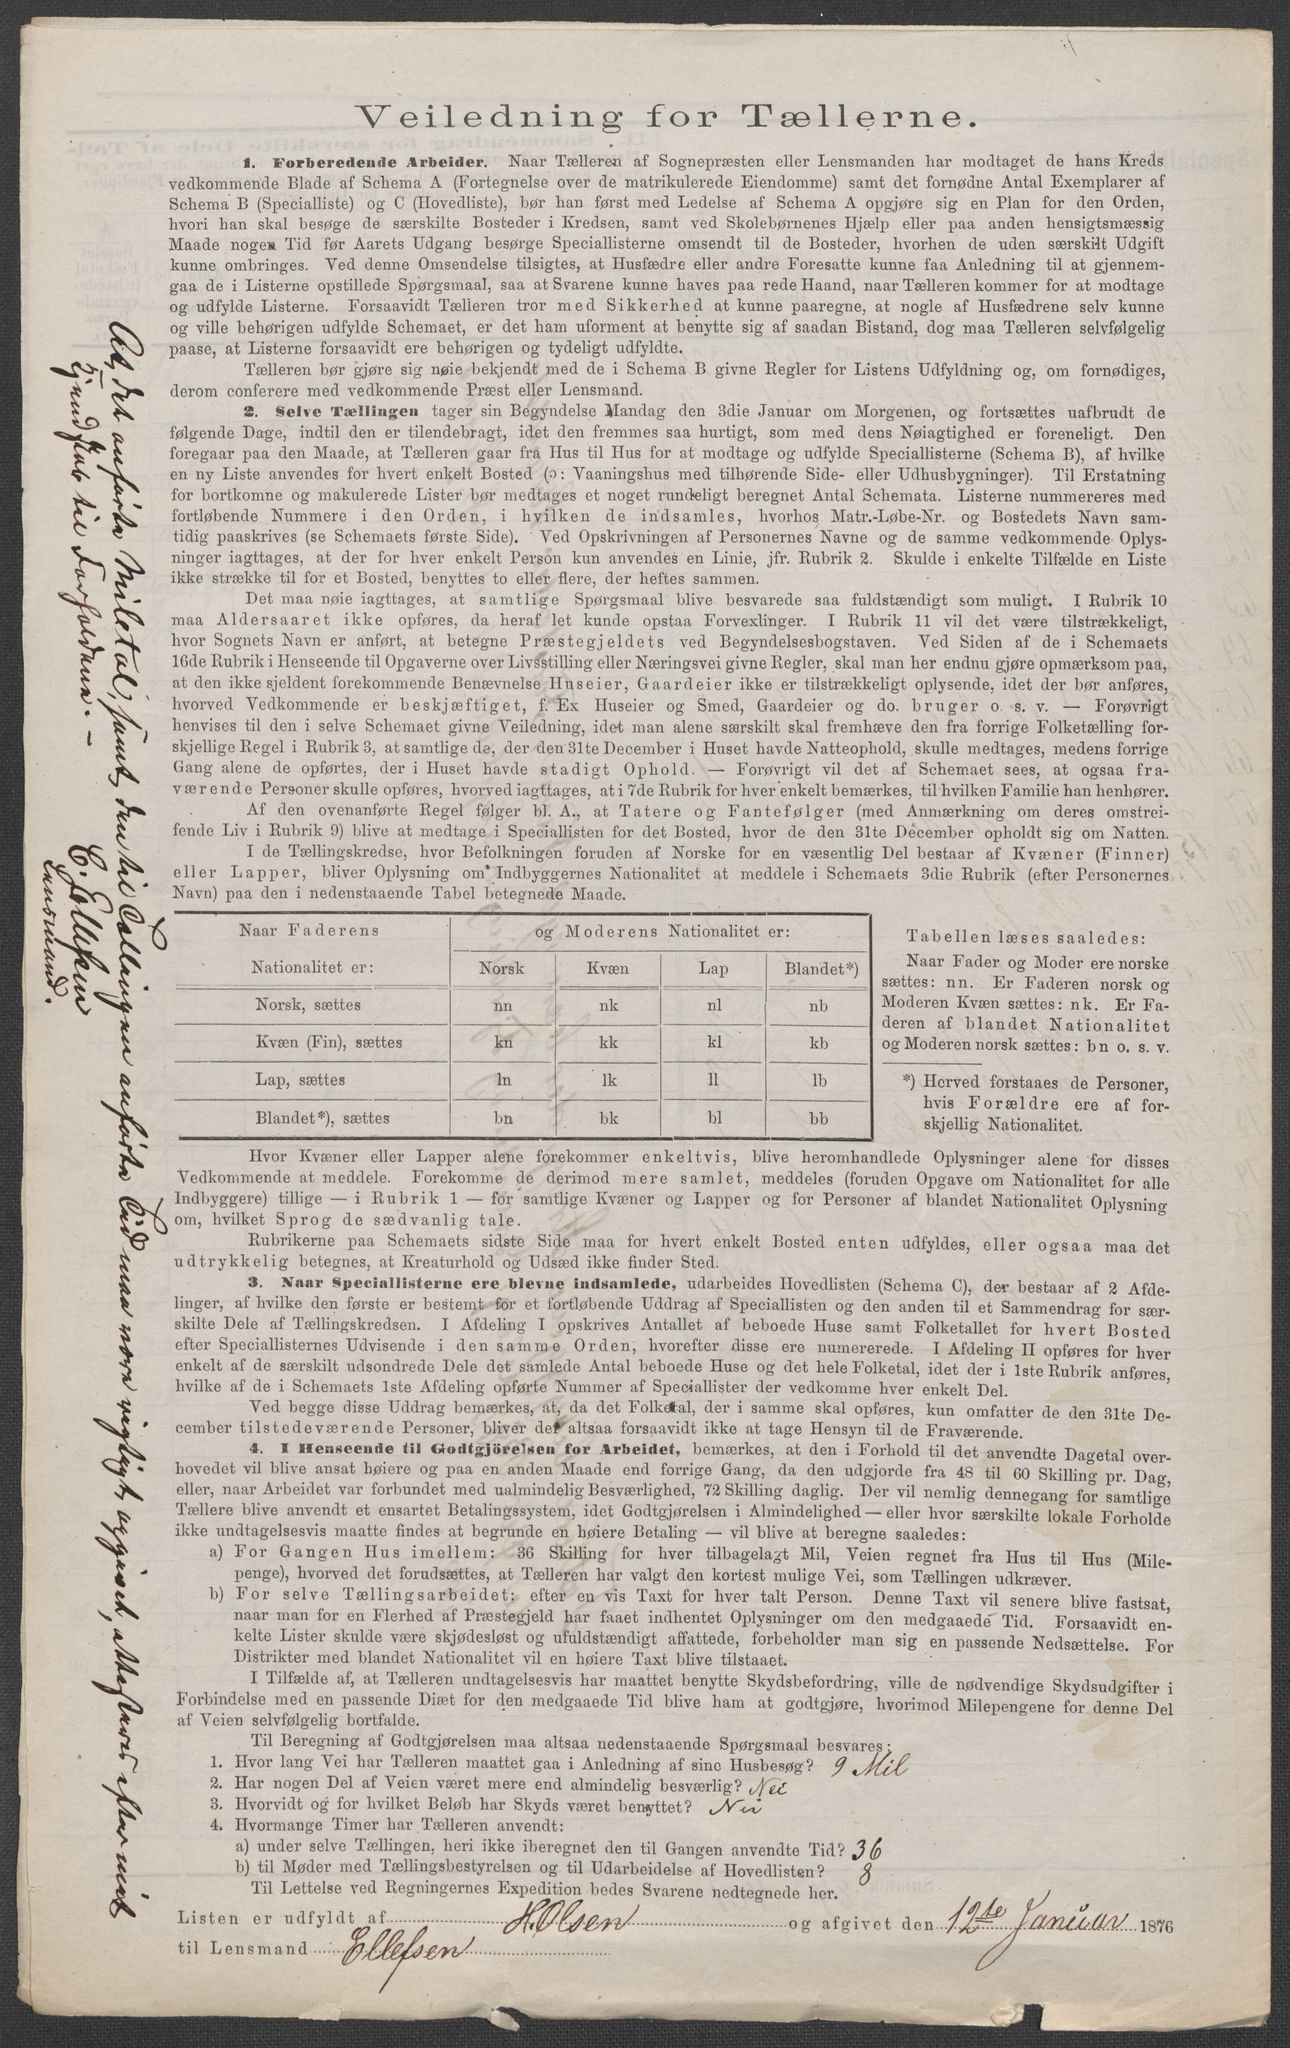 Veiledning for Tællerne.
1. Forberedende Arbeider. Naar Tælleren af Sognepræsten eller Lensmanden har modtaget de hans Kreds
vedkommende Blade af Schema A (Fortegnelse over de matrikulerede Eiendomme) samt det fornødne Antal Exemplarer af
Schema B (Specialliste) og C (Hovedliste), bør han først med Ledelse af Schema A opgjøre sig en Plan for den Orden,
hvori han skal besøge de særskilte Bosteder i Kredsen, samt ved Skolebørnenes Hjælp eller paa anden hensigtsmæssig
Maade nogen Tid før Aarets Udgang besørge Speciallisterne omsendt til de Bosteder, hvorhen de uden særskilt Udgift
kunne ombringes. Ved denne Omsendelse tilsigtes, at Husfædre eller andre Foresatte kunne faa Anledning til at gjennem-
gaa de i Listerne opstillede Spørgsmaal, saa at Svarene kunne haves paa rede Haand, naar Tælleren kommer for at modtage
og udfylde Listerne. Forsaavidt Tælleren tror med Sikkerhed at kunne paaregne, at nogle af Husfædrene selv kunne
og ville behørigen udfylde Schemaet, er det ham uforment at benytte sig af saadan Bistand, dog maa Tælleren selvfølgelig
paase, at Listerne forsaavidt ere behørigen og tydeligt udfyldte.
Tælleren bør gjøre sig nøie bekjendt med de i Schema B givne Regler for Listens Udfyldning og, om fornødiges,
derom conferere med vedkommende Præst eller Lensmand.
2. Selve Tællingen tager sin Begyndelse Mandag den 3die Januar om Morgenen, og fortsættes uafbrudt de
følgende Dage, indtil den er tilendebragt, idet den fremmes saa hurtigt, som med dens Nøiagtighed er foreneligt. Den
foregaar paa den Maade, at Tælleren gaar fra Hus til Hus for at modtage og udfylde Speciallisterne (Schema B), af hvilke
en ny Liste anvendes for hvert enkelt Bosted (ɔ: Vaaningshus med tilhørende Side- eller Udhusbygninger). Til Erstatning
for bortkomne og makulerede Lister bør medtages et noget rundeligt beregnet Antal Schemata. Listerne nummereres med
fortløbende Nummere i den Orden, i hvilken de indsamles, hvorhos Matr.-Løbe-Nr. og Bostedets Navn sam-
tidig paaskrives (se Schemaets første Side). Ved Opskrivningen af Personernes Navne og de samme vedkommende Oplys-
ninger iagttages, at der for hver enkelt Person kun anvendes en Linie, jfr. Rubrik 2. Skulde i enkelte Tilfælde en Liste
ikke strække til for et Bosted, benyttes to eller flere, der heftes sammen.
Det maa nøie iagttages, at samtlige Spørgsmaal blive besvarede saa fuldstændigt som muligt. I Rubrik 10
maa Aldersaaret ikke opføres, da heraf let kunde opstaa Forvexlinger. I Rubrik 11 vil det være tilstrækkeligt,
hvor Sognets Navn er anført, at betegne Præstegjeldets ved Begyndelsesbogstaven. Ved Siden af de i Schemaets
16de Rubrik i Henseende til Opgaverne over Livsstilling eller Næringsvei givne Regler, skal man her endnu gjøre opmærksom paa,
at den ikke sjeldent forekommende Benævnelse Huseier, Gaardeier ikke er tilstrækkeligt oplysende, idet der bør anføres,
hvorved Vedkommende er beskjæftiget, f. Ex Huseier og Smed, Gaardeier og do. bruger o. s. v. — Forøvrigt
henvises til den i selve Schemaet givne Veiledning, idet man alene særskilt skal fremhæve den fra forrige Folketælling for-
skjellige Regel i Rubrik 3, at samtlige de, der den 31te December i Huset havde Natteophold, skulle medtages, medens forrige
Gang alene de opførtes, der i Huset havde stadigt Ophold. — Forøvrigt vil det af Schemaet sees, at ogsaa fra-
værende Personer skulle opføres, hvorved iagttages, at i 7de Rubrik for hver enkelt bemærkes, til hvilken Familie han henhører.
Af den ovenanførte Regel følger bl. A., at Tatere og Fantefølger (med Anmærkning om deres omstrei-
fende Liv i Rubrik 9) blive at medtage i Speciallisten for det Bosted, hvor de den 31te December opholdt sig om Natten.
I de Tællingskredse, hvor Befolkningen foruden af Norske for en væsentlig Del bestaar af Kvæner (Finner)
eller Lapper, bliver Oplysning om Indbyggernes Nationalitet at meddele i Schemaets 3die Rubrik (efter Personernes
Navn) paa den i nedenstaaende Tabel betegnede Maade.
Naar Faderens og Moderens Nationalitet er:
Nationalitet er: Norsk Kvæn Lap Blandet*)
Norsk, sættes nn nk nl nb
Kvæn (Fin), sættes kn kk kl kb
Lap, sættes ln lk ll lb
Blandet*), sættes bn bk bl bb
Tabellen læses saaledes:
Naar Fader og Moder ere norske
sættes: nn. Er Faderen norsk og
Moderen Kvæn sættes: nk. Er Fa-
deren af blandet Nationalitet
og Moderen norsk sættes: bn o. s. v.
*) Herved forstaaes de Personer,
hvis Forældre ere af for-
skjellig Nationalitet.
Hvor Kvæner eller Lapper alene forekommer enkeltvis, blive heromhandlede Oplysninger alene for disses
Vedkommende at meddele. Forekomme de derimod mere samlet, meddeles (foruden Opgave om Nationalitet for alle
Indbyggere) tillige — i Rubrik 1 — for samtlige Kvæner og Lapper og for Personer af blandet Nationalitet Oplysning
om, hvilket Sprog de sædvanlig tale.
Rubrikerne paa Schemaets sidste Side maa for hvert enkelt Bosted enten udfyldes, eller ogsaa maa det
udtrykkelig betegnes, at Kreaturhold og Udsæd ikke finder Sted.
3. Naar Speciallisterne ere blevne indsamlede, udarbeides Hovedlisten (Schema C), der bestaar af 2 Afde-
linger, af hvilke den første er bestemt for et fortløbende Uddrag af Speciallisten og den anden til et Sammendrag for sær-
skilte Dele af Tællingskredsen. I Afdeling I opskrives Antallet af beboede Huse samt Folketallet for hvert Bosted
efter Speciallisternes Udvisende i den samme Orden, hvorefter disse ere nummererede. I Afdeling II opføres for hver
enkelt af de særskilt udsondrede Dele det samlede Antal beboede Huse og det hele Folketal, idet der i 1ste Rubrik anføres,
hvilke af de i Schemaets 1ste Afdeling opførte Nummer af Speciallister der vedkomme hver enkelt Del.
Ved begge disse Uddrag bemærkes, at, da det Folketal, der i samme skal opføres, kun omfatter de den 31te De-
cember tilstedeværende Personer, bliver der altsaa forsaavidt ikke at tage Hensyn til de Fraværende.
4. I Henseende til Godtgjörelsen for Arbeidet, bemærkes, at den i Forhold til det anvendte Dagetal over-
hovedet vil blive ansat høiere og paa en anden Maade end forrige Gang, da den udgjorde fra 48 til 60 Skilling pr. Dag,
eller, naar Arbeidet var forbundet med ualmindelig Besværlighed, 72 Skilling daglig. Der vil nemlig dennegang for samtlige
Tællere blive anvendt et ensartet Betalingssystem, idet Godtgjørelsen i Almindelighed — eller hvor særskilte lokale Forholde
ikke undtagelsesvis maatte findes at begrunde en høiere Betaling — vil blive at beregne saaledes:
a) For Gangen Hus imellem: 36 Skilling for hver tilbagelagt Mil, Veien regnet fra Hus til Hus (Mile-
penge), hvorved det forudsættes, at Tælleren har valgt den kortest mulige Vei, som Tællingen udkræver.
b) For selve Tællingsarbeidet: efter en vis Taxt for hver talt Person. Denne Taxt vil senere blive fastsat,
naar man for en Flerhed af Præstegjeld har faaet indhentet Oplysninger om den medgaaede Tid. Forsaavidt en-
kelte Lister skulde være skjødesløst og ufuldstændigt affattede, forbeholder man sig en passende Nedsættelse. For
Distrikter med blandet Nationalitet vil en høiere Taxt blive tilstaaet.
I Tilfælde af, at Tælleren undtagelsesvis har maattet benytte Skydsbefordring, ville de nødvendige Skydsudgifter i
Forbindelse med en passende Diæt for den medgaaede Tid blive ham at godtgjøre, hvorimod Milepengene for denne Del
af Veien selvfølgelig bortfalde.
Til Beregning af Godtgjørelsen maa altsaa nedenstaaende Spørgsmaal besvares:
1. Hvor lang Vei har Tælleren maattet gaa i Anledning af sine Husbesøg? 9 Mil
2. Har nogen Del af Veien været mere end almindelig besværlig? Nei
3. Hvorvidt og for hvilket Beløb har Skyds været benyttet? Nei
4. Hvormange Timer har Tælleren anvendt:
a) under selve Tællingen, heri ikke iberegnet den til Gangen anvendte Tid? 36
b) til Møder med Tællingsbestyrelsen og til Udarbeidelse af Hovedlisten? 8
Til Lettelse ved Regningernes Expedition bedes Svarene nedtegnede her.
Listen er udfyldt af H. Olsen og afgivet den 12te Januar 1876
til Lensmand Ellefsen
At det anførte Miletal, samt den til Tællingen anførte Tid maa være rigtigt opgivet, attesteres efter mit
Kjendskab til Forholdene. —
E. Ellefsen
Lensmand.